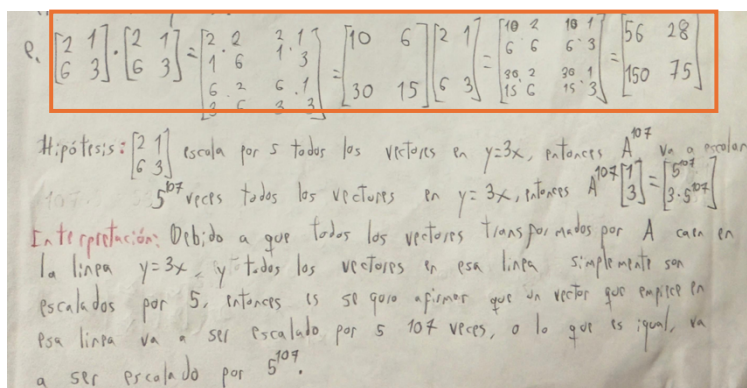 P. [2 1; 6 3] · [2 1; 6 3] = [2·2 2·1; 1·6 1·3; 6·2 6·1; 3·6 3·3] = [10 6; 30 15] [2 1; 6 3] = [10·2 10·1; 6·6 6·3; 30·2 30·1; 15·6 15·3] = [56 28; 150 75]
Hipótesis: [2 1; 6 3] escala por 5 todos los vectores en y=3x, entonces A^107 va a escalar
5^107 veces todos los vectores en y=3x, entonces A^107 [1; 3] = [5^107; 3·5^107]
Interpretación: Debido a que todos los vectores transformados por A caen en
la linea y=3x, y todos los vectores en esa linea simplemente son
escalados por 5, entonces es seguro afirmar que un vector que empiece en
esa linea va a ser escalado por 5 107 veces, o lo que es igual, va
a ser escalado por 5^107.